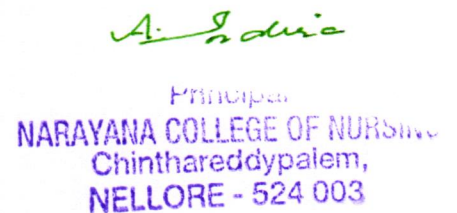 A. Indira
Principal
NARAYANA COLLEGE OF NURSING
Chinthareddypalem,
NELLORE - 524 003